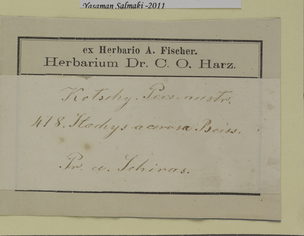 Yasaman Salmaki -2011
ex Herbario A. Fischer.
Herbarium Dr. C. O. Harz.
Kotschy. Pers. austr.
418. Stachys acerosa Boiss.
Pr. u. Schiras.